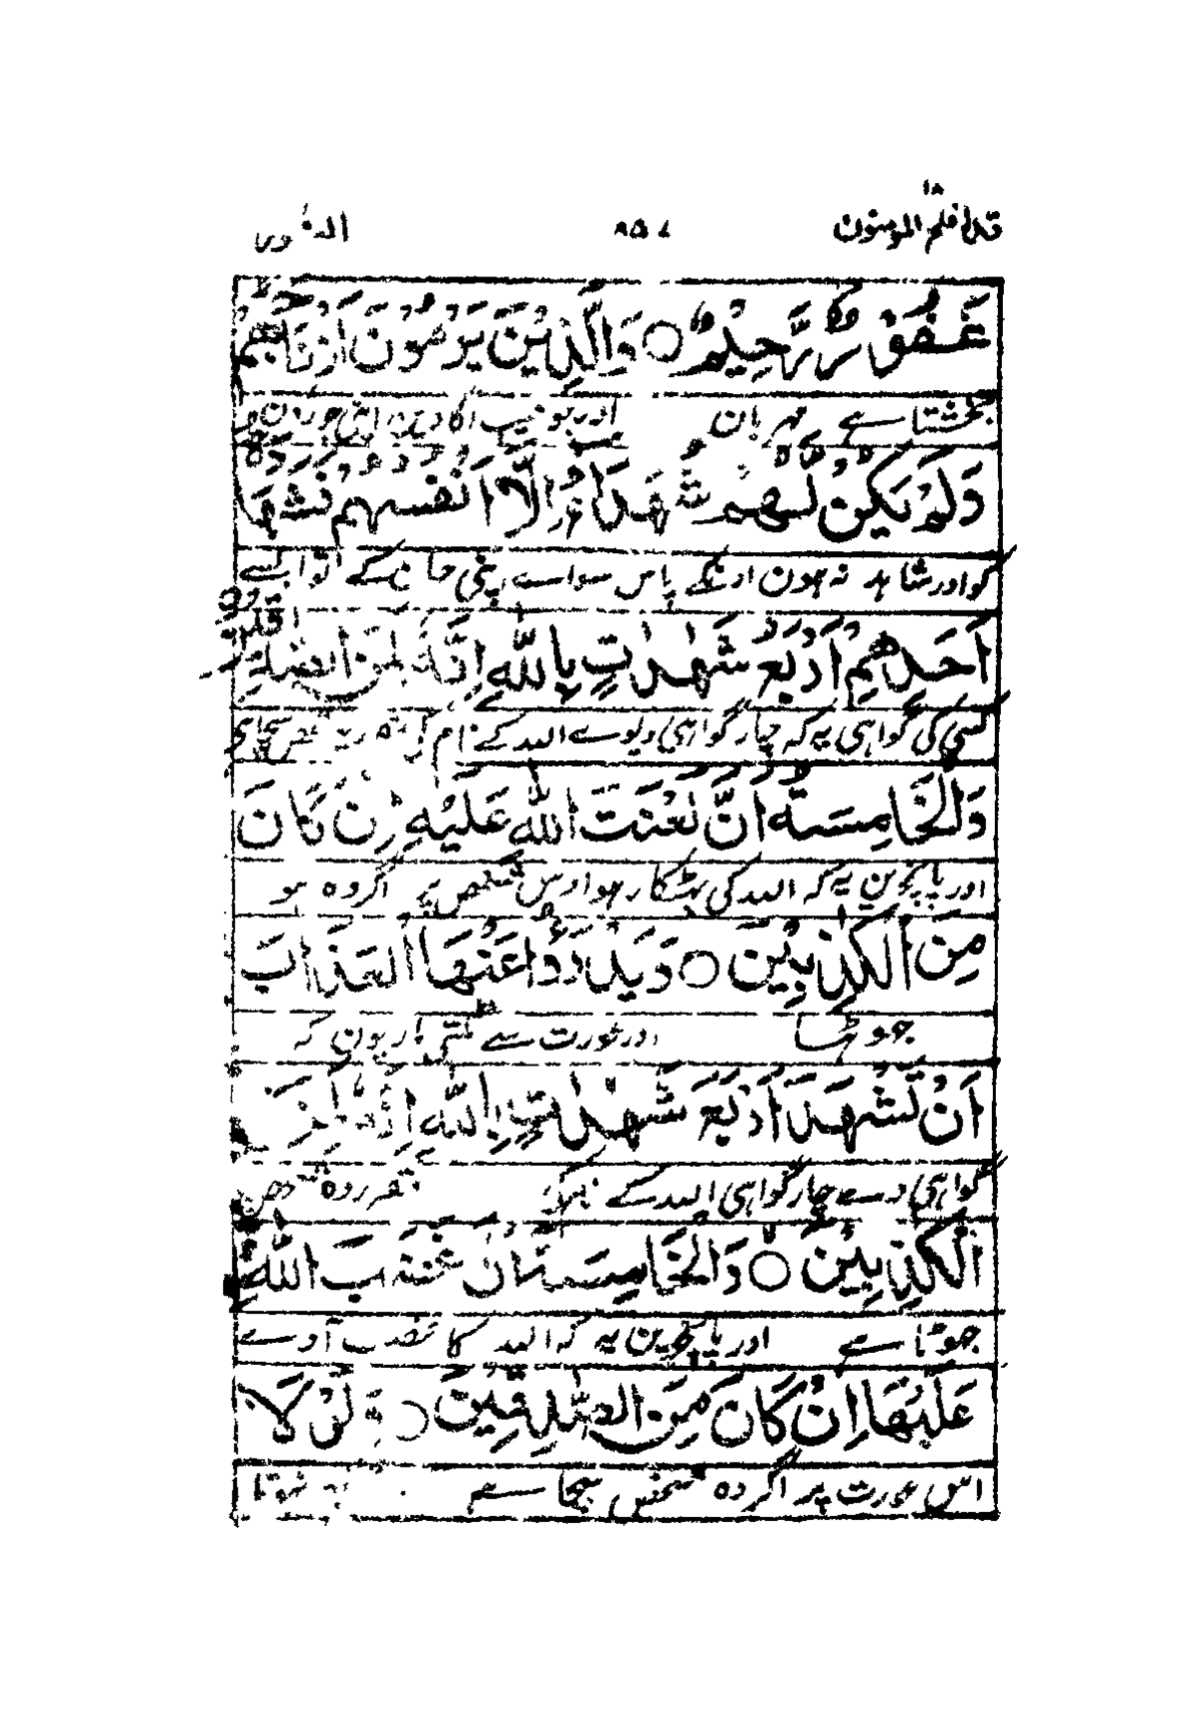 ۱۸
قد افلح المومنون ۸۵۷ النور
غَفُوْرٌ رَّحِيْمٌ ○ وَالَّذِيْنَ يَرْمُوْنَ اَزْوَاجَهُمْ
بخشتا ہے مہربان اور جو عیب لگاویں اپنی جورون
وَلَمْ يَكُنْ لَّهُمْ شُهَدَآءُ اِلَّآ اَنْفُسُهُمْ فَشَهَادَةُ
کو اور شاہد نہ ہون اونکے پاس سواے اپنی جان کے تو ایسے
اَحَدِهِمْ اَرْبَعُ شَهٰدٰتٍۭ بِاللّٰهِ اِنَّهٗ لَمِنَ الصّٰدِقِيْنَ
کسی کی گواہی یہ کہ چار گواہی دیوے اللہ کے نام کی شخص سچا ہے
وَالْخَامِسَةُ اَنَّ لَعْنَتَ اللّٰهِ عَلَيْهِ اِنْ كَانَ
اور پانچوین یہ کہ اللہ کی پھٹکار ہو اوس شخص پر اگر وہ ہو
مِنَ الْكٰذِبِيْنَ ○ وَيَدْرَؤُا عَنْهَا الْعَذَابَ
جھوٹھا اور عورت سے ٹلتی مار یون کہ
اَنْ تَشْهَدَ اَرْبَعَ شَهٰدٰتٍۭ بِاللّٰهِ اِنَّهٗ لَمِنَ
گواہی دے چار گواہی اللہ کے نام کی مقرر وہ شخص
الْكٰذِبِيْنَ ○ وَالْخَامِسَةَ اَنَّ غَضَبَ اللّٰهِ
جھوٹا ہے اور پانچوین یہ کہ اللہ کا غضب آوے
عَلَيْهَآ اِنْ كَانَ مِنَ الصّٰدِقِيْنَ ○ وَلَوْلَا
اس عورت پر اگر وہ شخص سچا ہے نہوتا